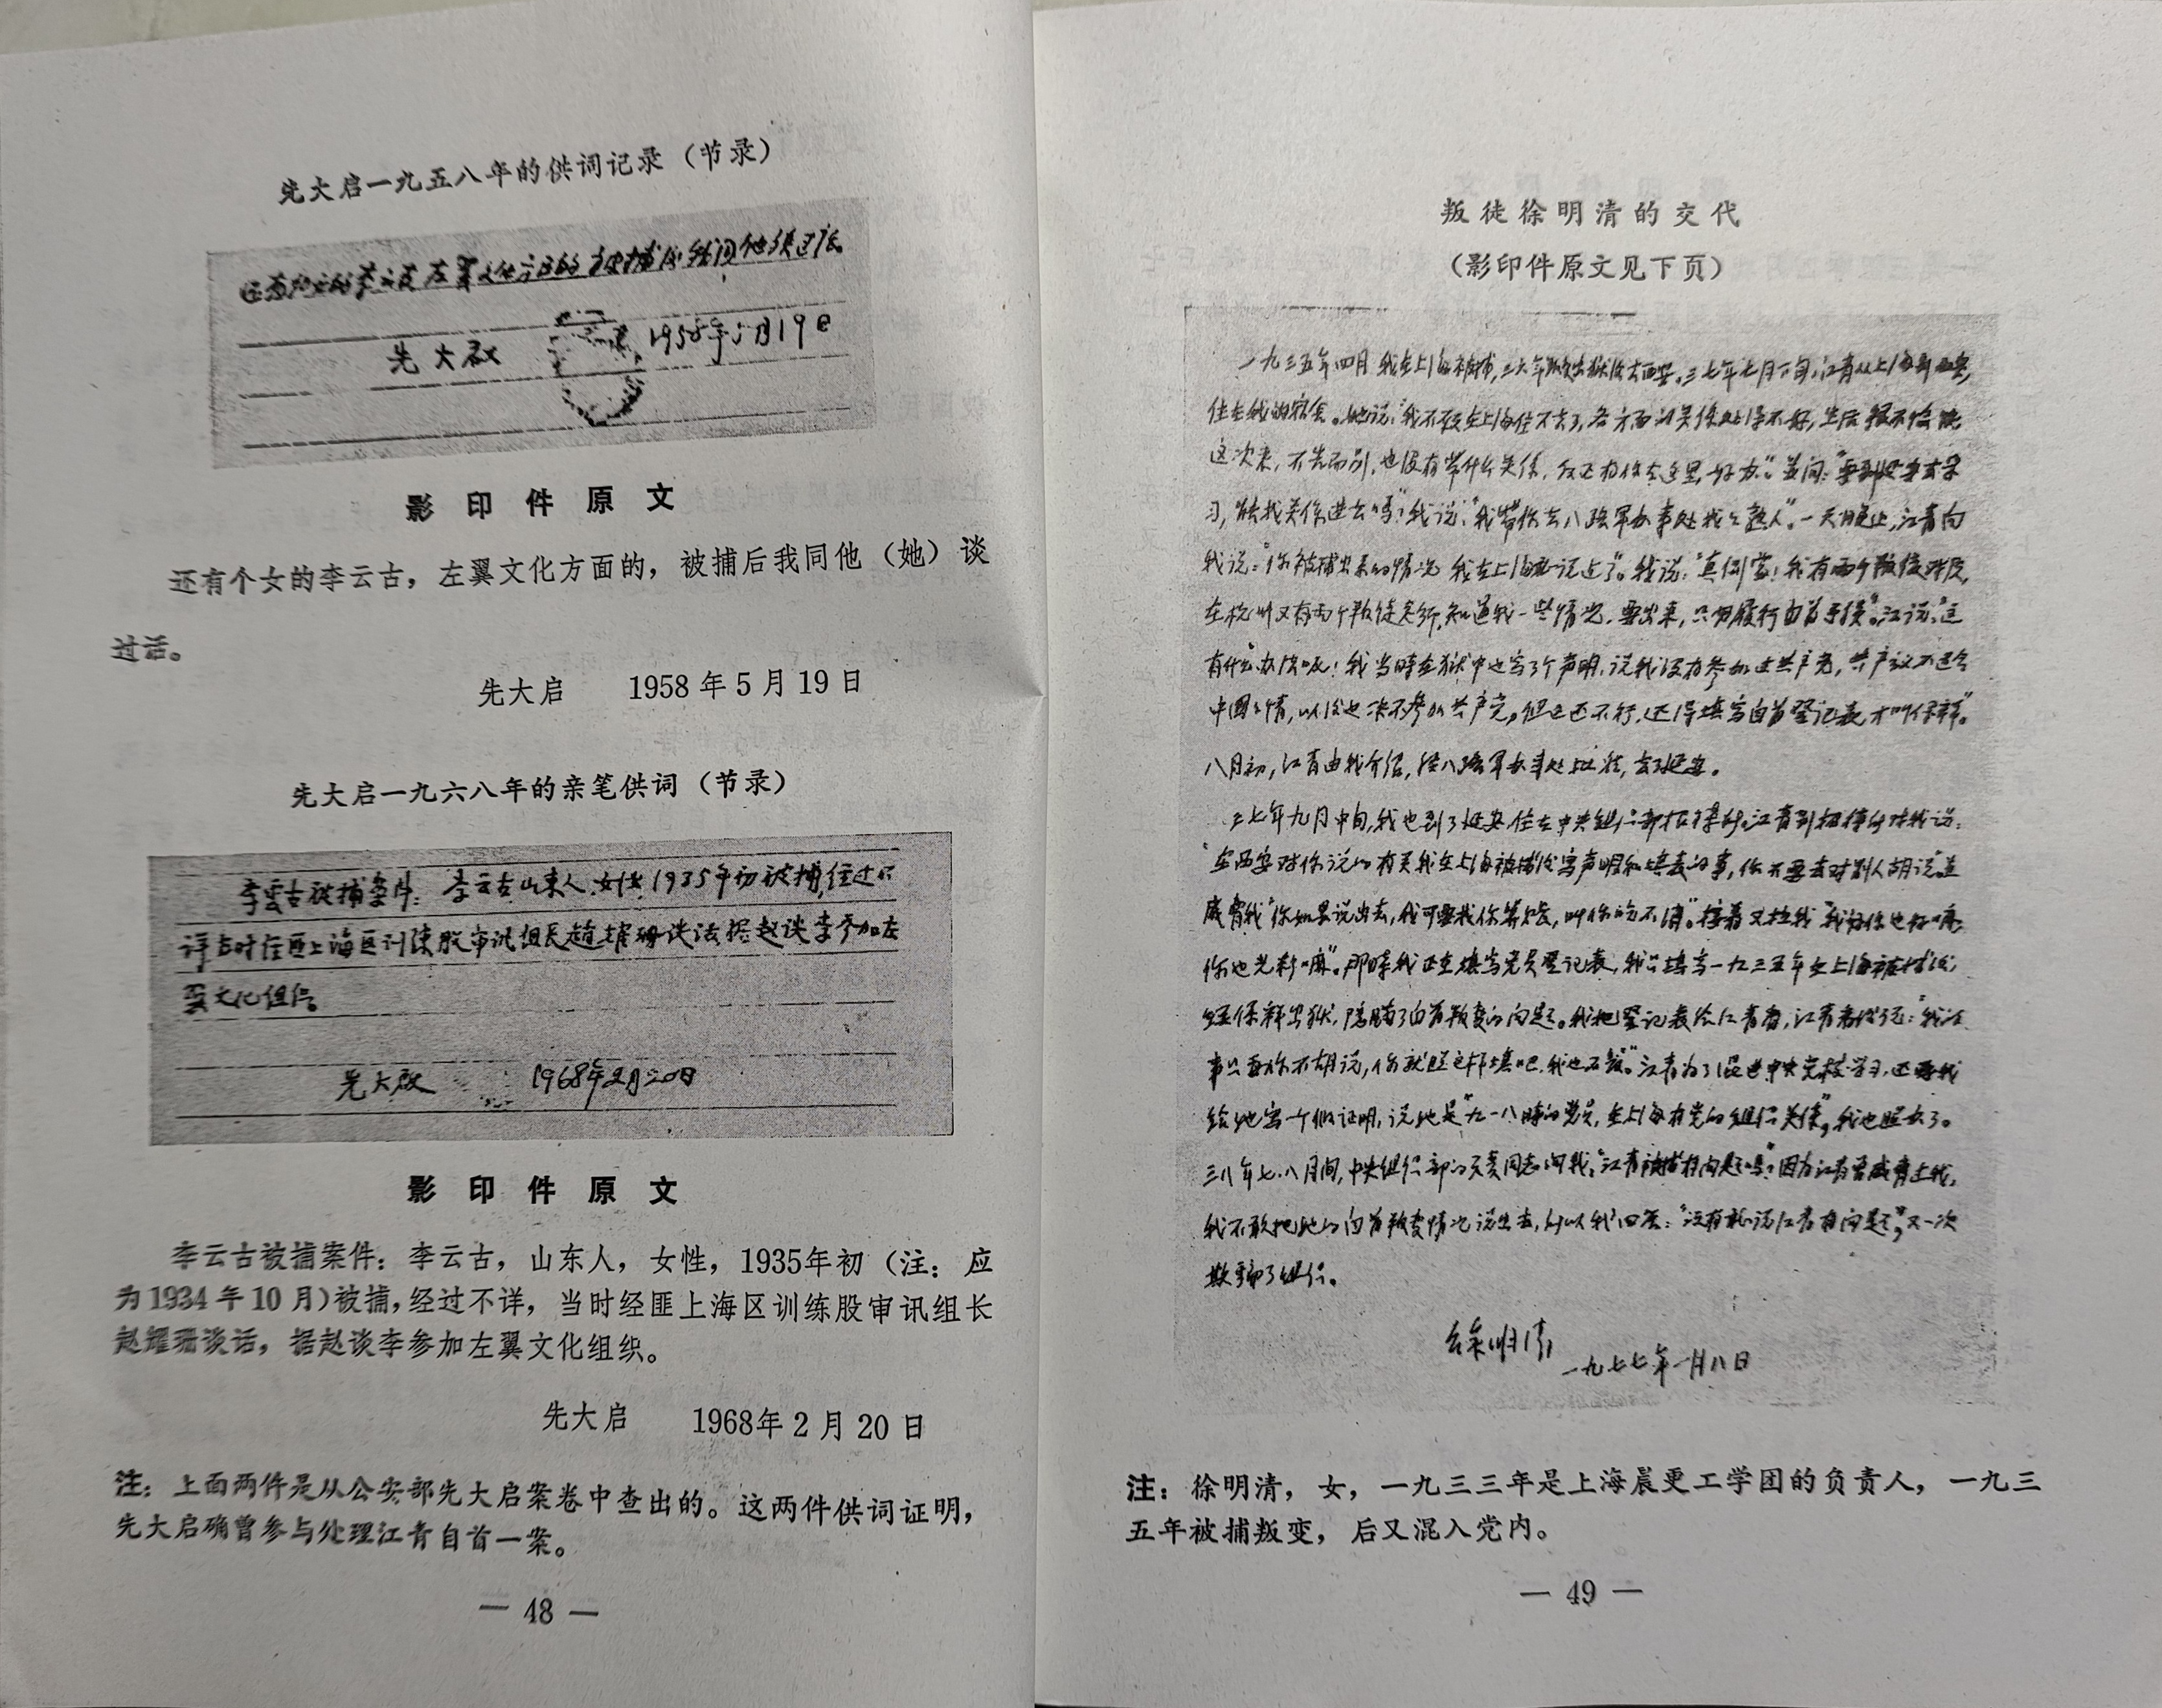 先大启一九五八年的供词记录（节录）
还有个女的李云古左翼文化方面的被捕后我同他谈过话。
先大启 1958年5月19日
影印件原文
还有个女的李云古，左翼文化方面的，被捕后我同他（她）谈
过话。
先大启 1958年5月19日
先大启一九六八年的亲笔供词（节录）
李云古被捕案件：李云古山东人，女性，1935年初被捕，经过不
详当时任匪上海区训练股审讯组长赵耀珊谈话据赵谈李参加左
翼文化组织。
先大启 1968年2月20日
影印件原文
李云古被捕案件：李云古，山东人，女性，1935年初（注：应
为1934年10月）被捕，经过不详，当时经匪上海区训练股审讯组长
赵耀珊谈话，据赵谈李参加左翼文化组织。
先大启 1968年2月20日
注：上面两件是从公安部先大启案卷中查出的。这两件供词证明，
先大启确曾参与处理江青自首一案。
— 48 —
叛徒徐明清的交代
（影印件原文见下页）
一九三五年四月我在上海被捕，三六年出狱后去西安。三七年七月下旬，江青从上海到西安，
住在我的宿舍。她说：“我不在上海住不去了，各方面的关系处得不好，生活很不愉快
这次来，不告而别，也没有带什么关系，反正有你在这里，好办。”并问：“要到延安去学
习，能找关系进去吗？”我说：“我带你去八路军办事处找个熟人”。一天晚上，江青向
我说：“你被捕出来的情况我在上海听说过了”。我说：“真倒霉！我有两个叛徒对质，
在杭州又有两个叛徒，知道我一些情况，要出来，只有履行自首手续”。江说：“这
有什么办法呢！我当时在狱中也写了个声明，说我没有参加过共产党，共产主义不适合
中国国情，以后也决不参加共产党。但这还不行，还得填写自首登记表才叫保释”。
八月初，江青由我介绍，经八路军办事处批准，去了延安。
三七年九月中旬，我也到了延安住在中央组织部招待所。江青到招待所对我说：
“在西安对你说的有关我在上海被捕后写声明和填表的事，你不要去对别人胡说”，并
威胁我“你如果说出去，我可要找你算账，叫你吃不消”。接着又拉我“我好你也好嘛
你也光彩嘛”。那时我正在填写党员登记表，我只填写一九三五年在上海被捕后，
经保释出狱，隐瞒了自首叛变的问题。我把登记表给江青看，江青看后说：“我的
事只要你不胡说，你就照这样填吧，我也不管。”江青为了混进中央党校学习，还要我
给她写一个假证明，说她是“九一八时的党员，在上海有党的组织关系”，我也照办了。
三八年七、八月间，中央组织部的负责同志问我：“江青被捕有问题吗？”因为江青曾威胁过我，
我不敢把她的自首叛变情况说出去，所以我回答：“没有听说江青有问题”，又一次
欺骗了组织。
徐明清
一九七七年一月八日
注：徐明清，女，一九三三年是上海晨更工学团的负责人，一九三
五年被捕叛变，后又混入党内。
— 49 —